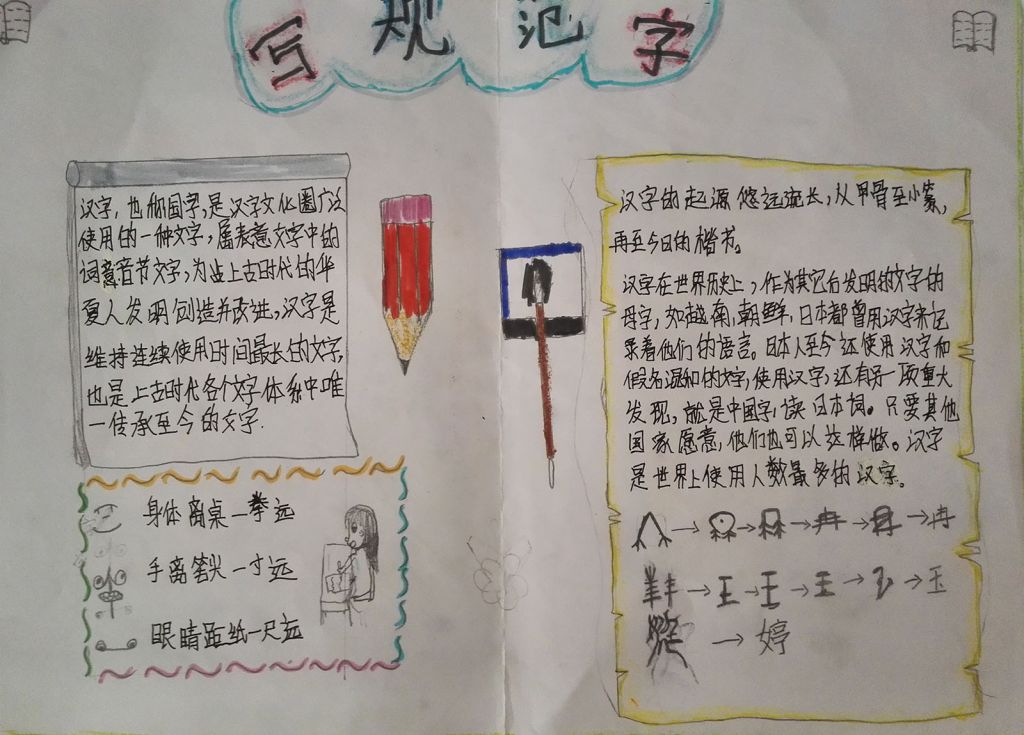 写规范字
汉字,也称国字,是汉字文化圈广泛
使用的一种文字,属表意文字中的
词意音节文字,为上古时代的华
夏人发明创造并改进,汉字是
维持连续使用时间最长的文字,
也是上古时代各个文字体系中唯
一传承至今的文字.
身体离桌一拳远
手离笔尖一寸远
眼睛距纸一尺远
汉字的起源悠远流长,从甲骨至小篆,
再至今日的楷书。
汉字在世界历史上,作为其它后发明的文字的
母字,如越南,朝鲜,日本都曾用汉字来记
录着他们的语言。日本人至今还使用汉字和
假名混和的文字,使用汉字,还有另一项重大
发现,就是中国字,读日本词。只要其他
国家愿意,他们也可以这样做。汉字
是世界上使用人数最多的汉字。
→ → → 冉 → → 冉
→ 王 → 王 → 王 → → 玉
→ 婷